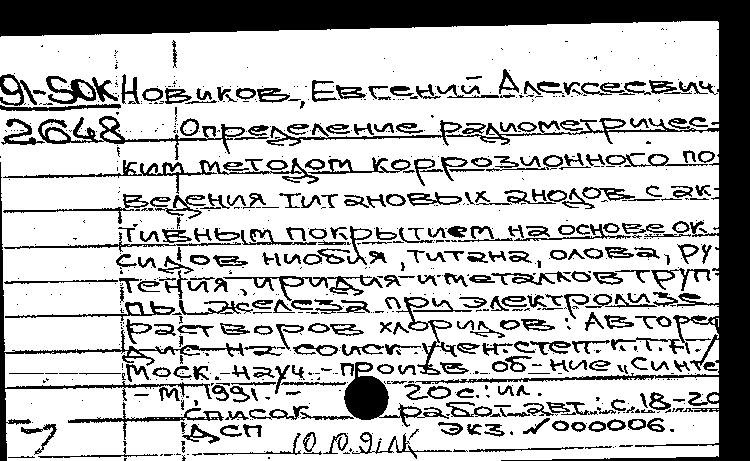 91-50К Новиков, Евгений Алексеевич
2648 Определение радиометричес-
ким методом коррозионного по-
ведения титановых анодов с ак-
тивным покрытием на основе ок-
сидов ниобия, титана, олова, ру-
тения, иридия и металлов груп-
пы железа при электролизе
растворов хлоридов: Автореф
дис. на соиск. учен. степ. к.т.н. /
Моск. науч.-произв. об-ние „Синте
- М., 1991. - 20 с.: ил.
Список работ авт.: с. 18-20
ДСП экз. №000006.
10.10.91